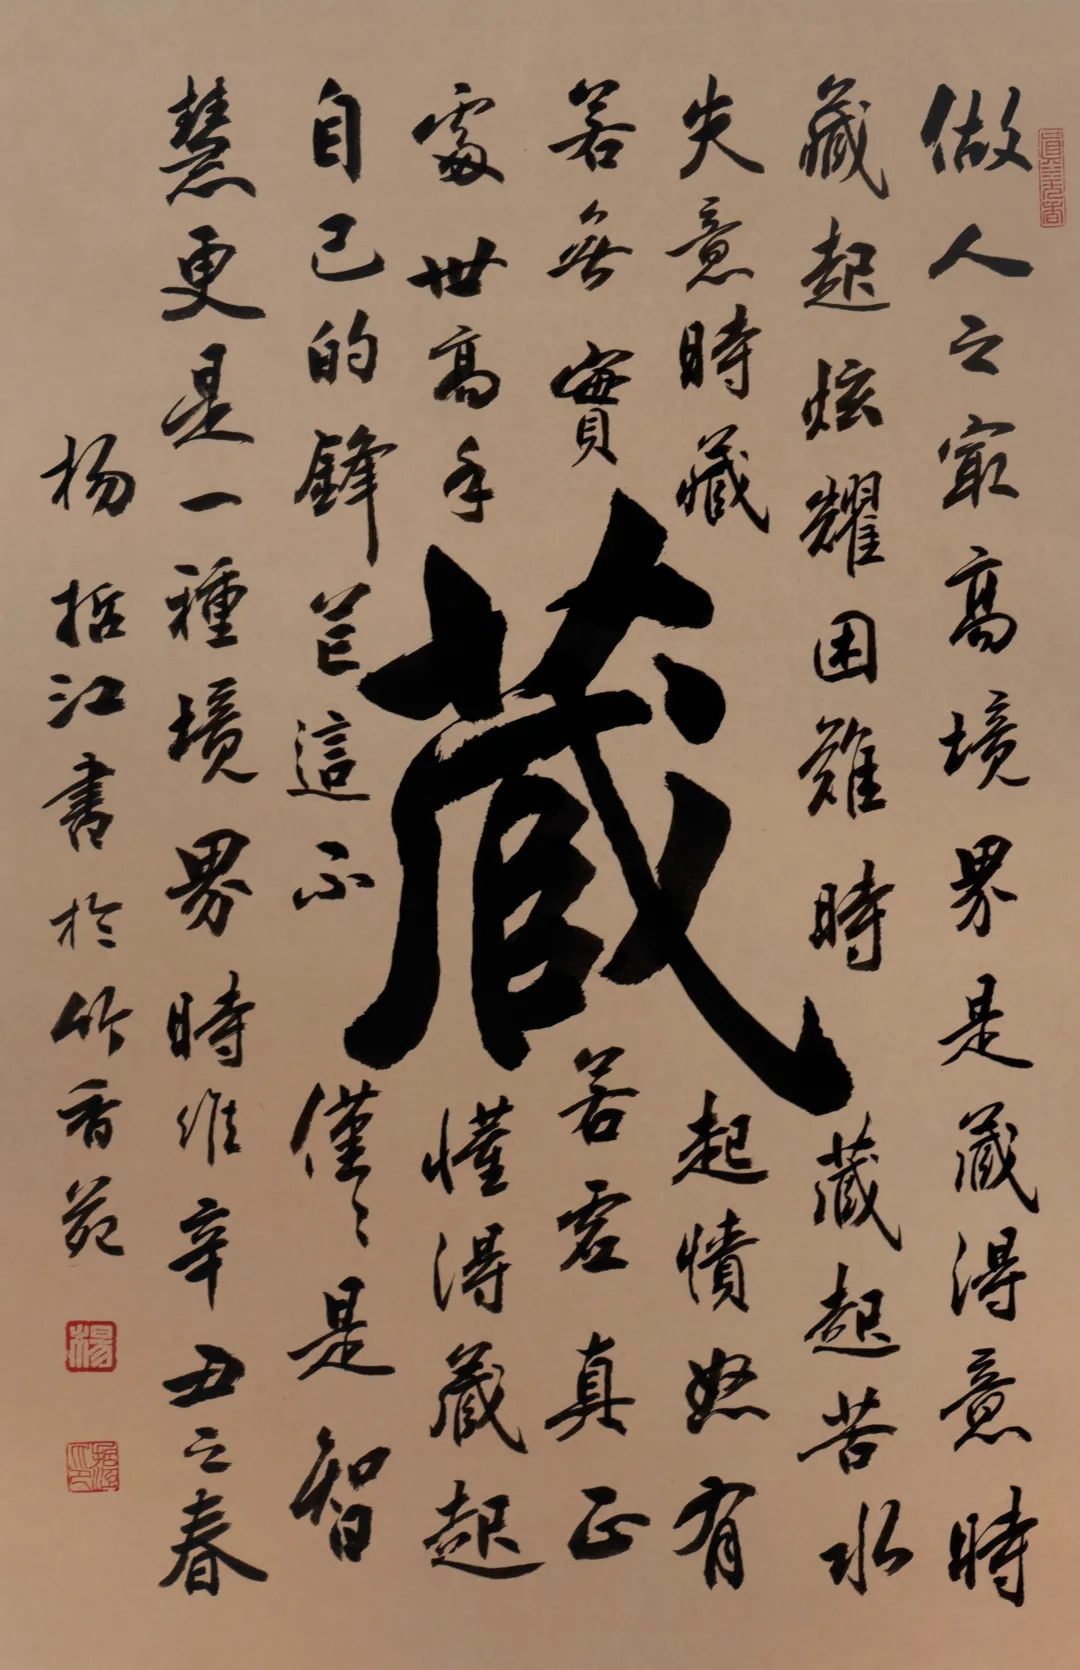 做人之最高境界是藏得意時
藏起炫耀困難時藏起苦水
失意時藏起憤怒有
若無實若虛真正
藏
處世高手懂得藏起
自己的鋒芒這不僅々是智
慧更是一種境界時維辛丑之春
杨哲江書於竹香苑
楊